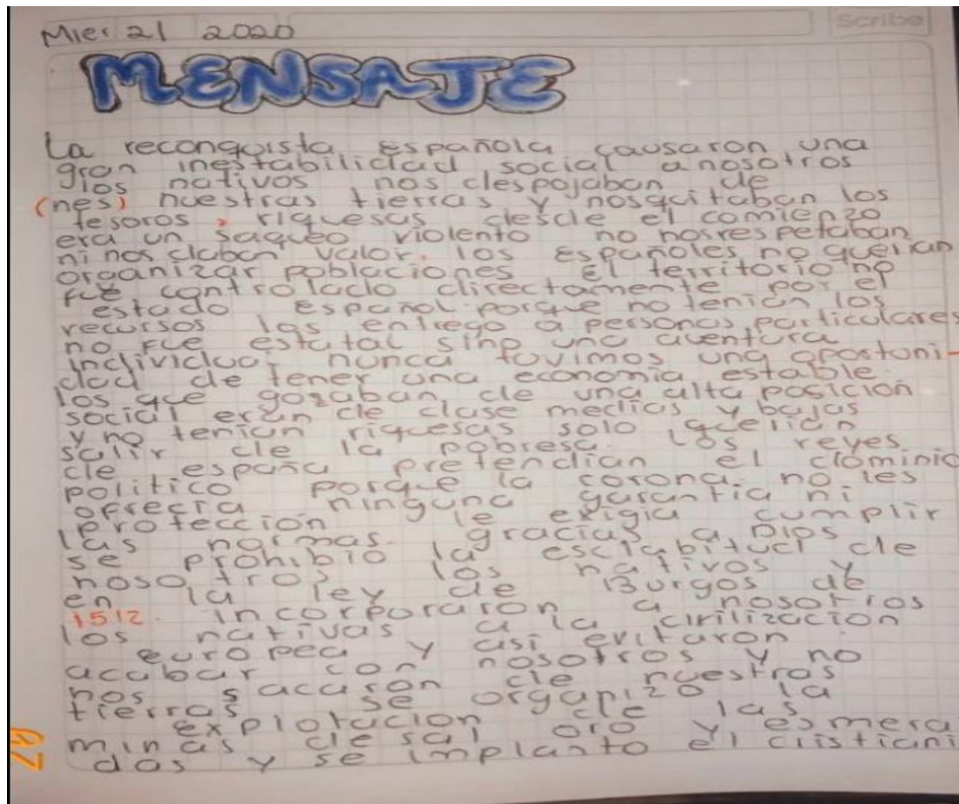 Scribe
Mier 21 2020
MENSAJE
La reconquista española causaron una
gran inestabilidad social a nosotros
los nativos nos despojaban de
(nes) nuestras tierras y nosquitaban los
tesoros, riquesas desde el comienzo
era un saqueo violento no nosrespetaban
ni nos daban valor. los Españoles no querian
organizar poblaciones El territorio no
fue controlado directamente por el
estado Español porque no tenian los
recursos los entrego a personas particulares
no fue estatal sino una aventura
individual nunca tuvimos una opostuni-
dad de tener una economia estable
los que gozaban de una alta posicion
social eran de clase medias y bajas
y no tenian riquesas solo querian
salir de la pobresa. Los reyes
de españa pretendian el dominio
politico porque la corona no les
ofrecia ninguna garantia ni
proteccion le exigia cumplir
las normas. gracias a Dios
se prohibio la esclabitud de
nosotros los nativos y
en la ley de Burgos de
1512. incorporaron a nosotros
los nativas a la civilizacion
europea y asi evitaron
acabar con nosotros y no
nos sacaron de nuestras
tierras se organizo la
explotacion de las
minas de sal oro y esmeral
das y se implanto el cristiani